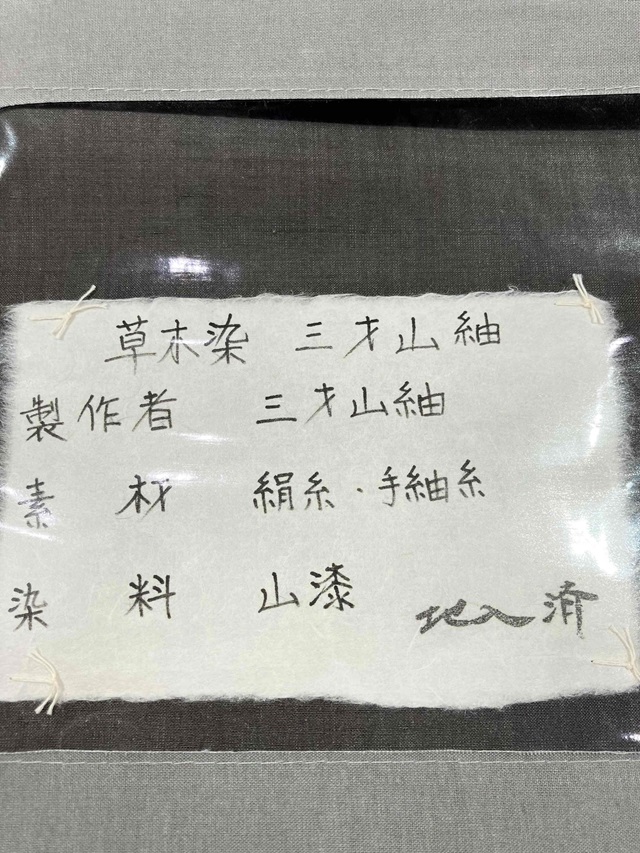 草木染 三才山紬
製作者 三才山紬
素材 絹糸・手紬糸
染料 山漆
地入済